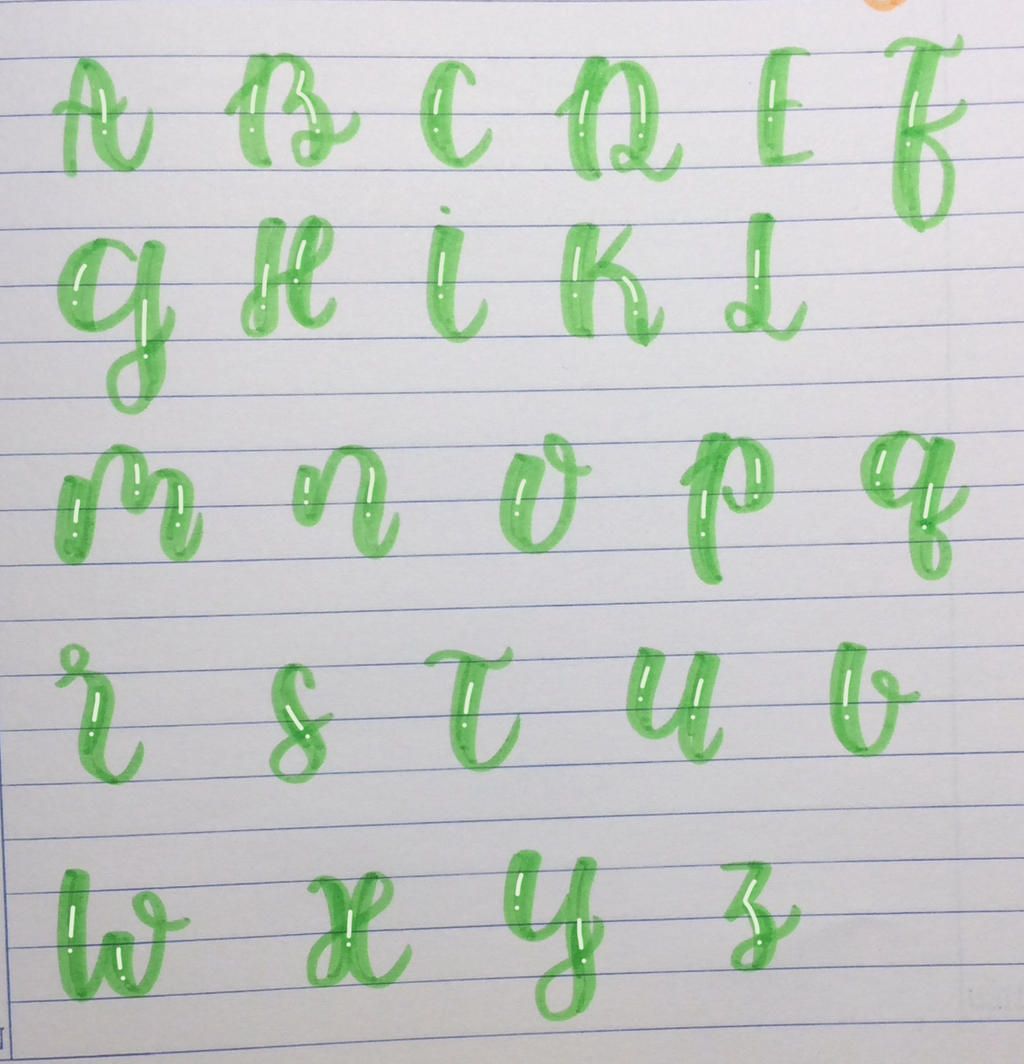 A B C D E F
G H i K L
m n o p q
r s T u v
w x y z